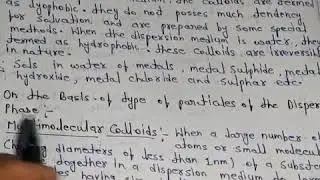 as lyophobic. they do not posses much tendency
for Salvation and are prepared by some special
methods. When the dispersion medium is water, they
termed as hydrophobic. these colloids are irreversible
in nature
Sols in water of metals, metal Sulphide, metal
hydroxide, metal chloride and Sulphur etc.
On the Basis of type of particles of the Disper
Phase:-
molecular Colloids:- When a large number of
atoms or small molecul
diameters of less than 1nm) of a Subst
together in a dispersion medium to
having